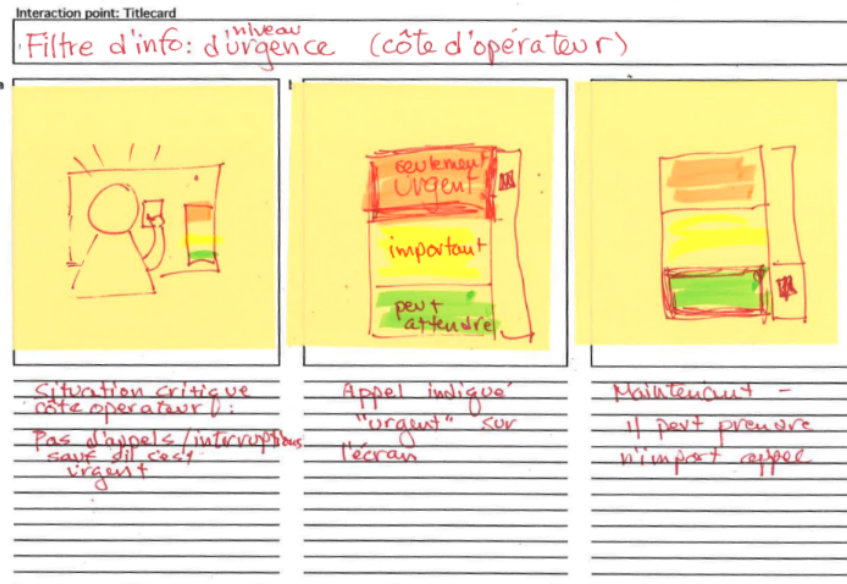 Interaction point: Titlecard
niveau
Filtre d'info: d'urgence (côte d'opérateur)
seulement
urgent
important
peut
attendre
Situation critique
côte operateur :
Pas d'appels/interruptions
sauf sil c'est
urgent
Appel indiqué
"urgent" sur
l'écran
Maintenant -
il peut prendre
n'import appel